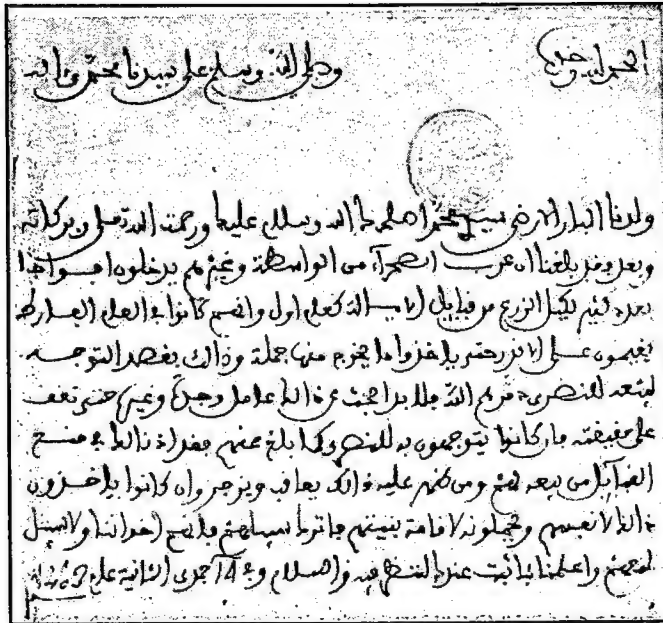 الحمد لله وحده
وصلى الله وسلم على سيدنا محمد وآله
ولدنا البار الارضى سيدي محمد اصلحك الله وسلام عليك ورحمت الله تعلى وبركاته
وبعد فقد بلغنا ان عرب الصحراء من الواسطة وغيرهم يدخلون
بعدد كثير لكيل الزرع من قبايل الايالة كعام اول وانهم كانوا في العام الفارط
يقيمون على حتى ياخذوا ما يخرج منها جملة وذالك بقصد التوجه
لبيعه للنصرى دمرهم الله فلا بد ابحث عن ذالك عامل وجدة وغيره حتى تقف
على حقيقته فان كانوا يتوجهون به للنصرى كما بلغ عنهم في منع
القبايل من بيعه لهم ومن ظهر عليه ذالك يعاقب ويزجر وان كانوا ياخذون
ذالك لانفسهم ويحملونه لاقامة بنيتهم فاترك سبيلهم فانهم اخواننا ولا سبيل
لمنعهم واعلمنا بما ثبت عندك والسلام في 14 جمدى الثانية عام